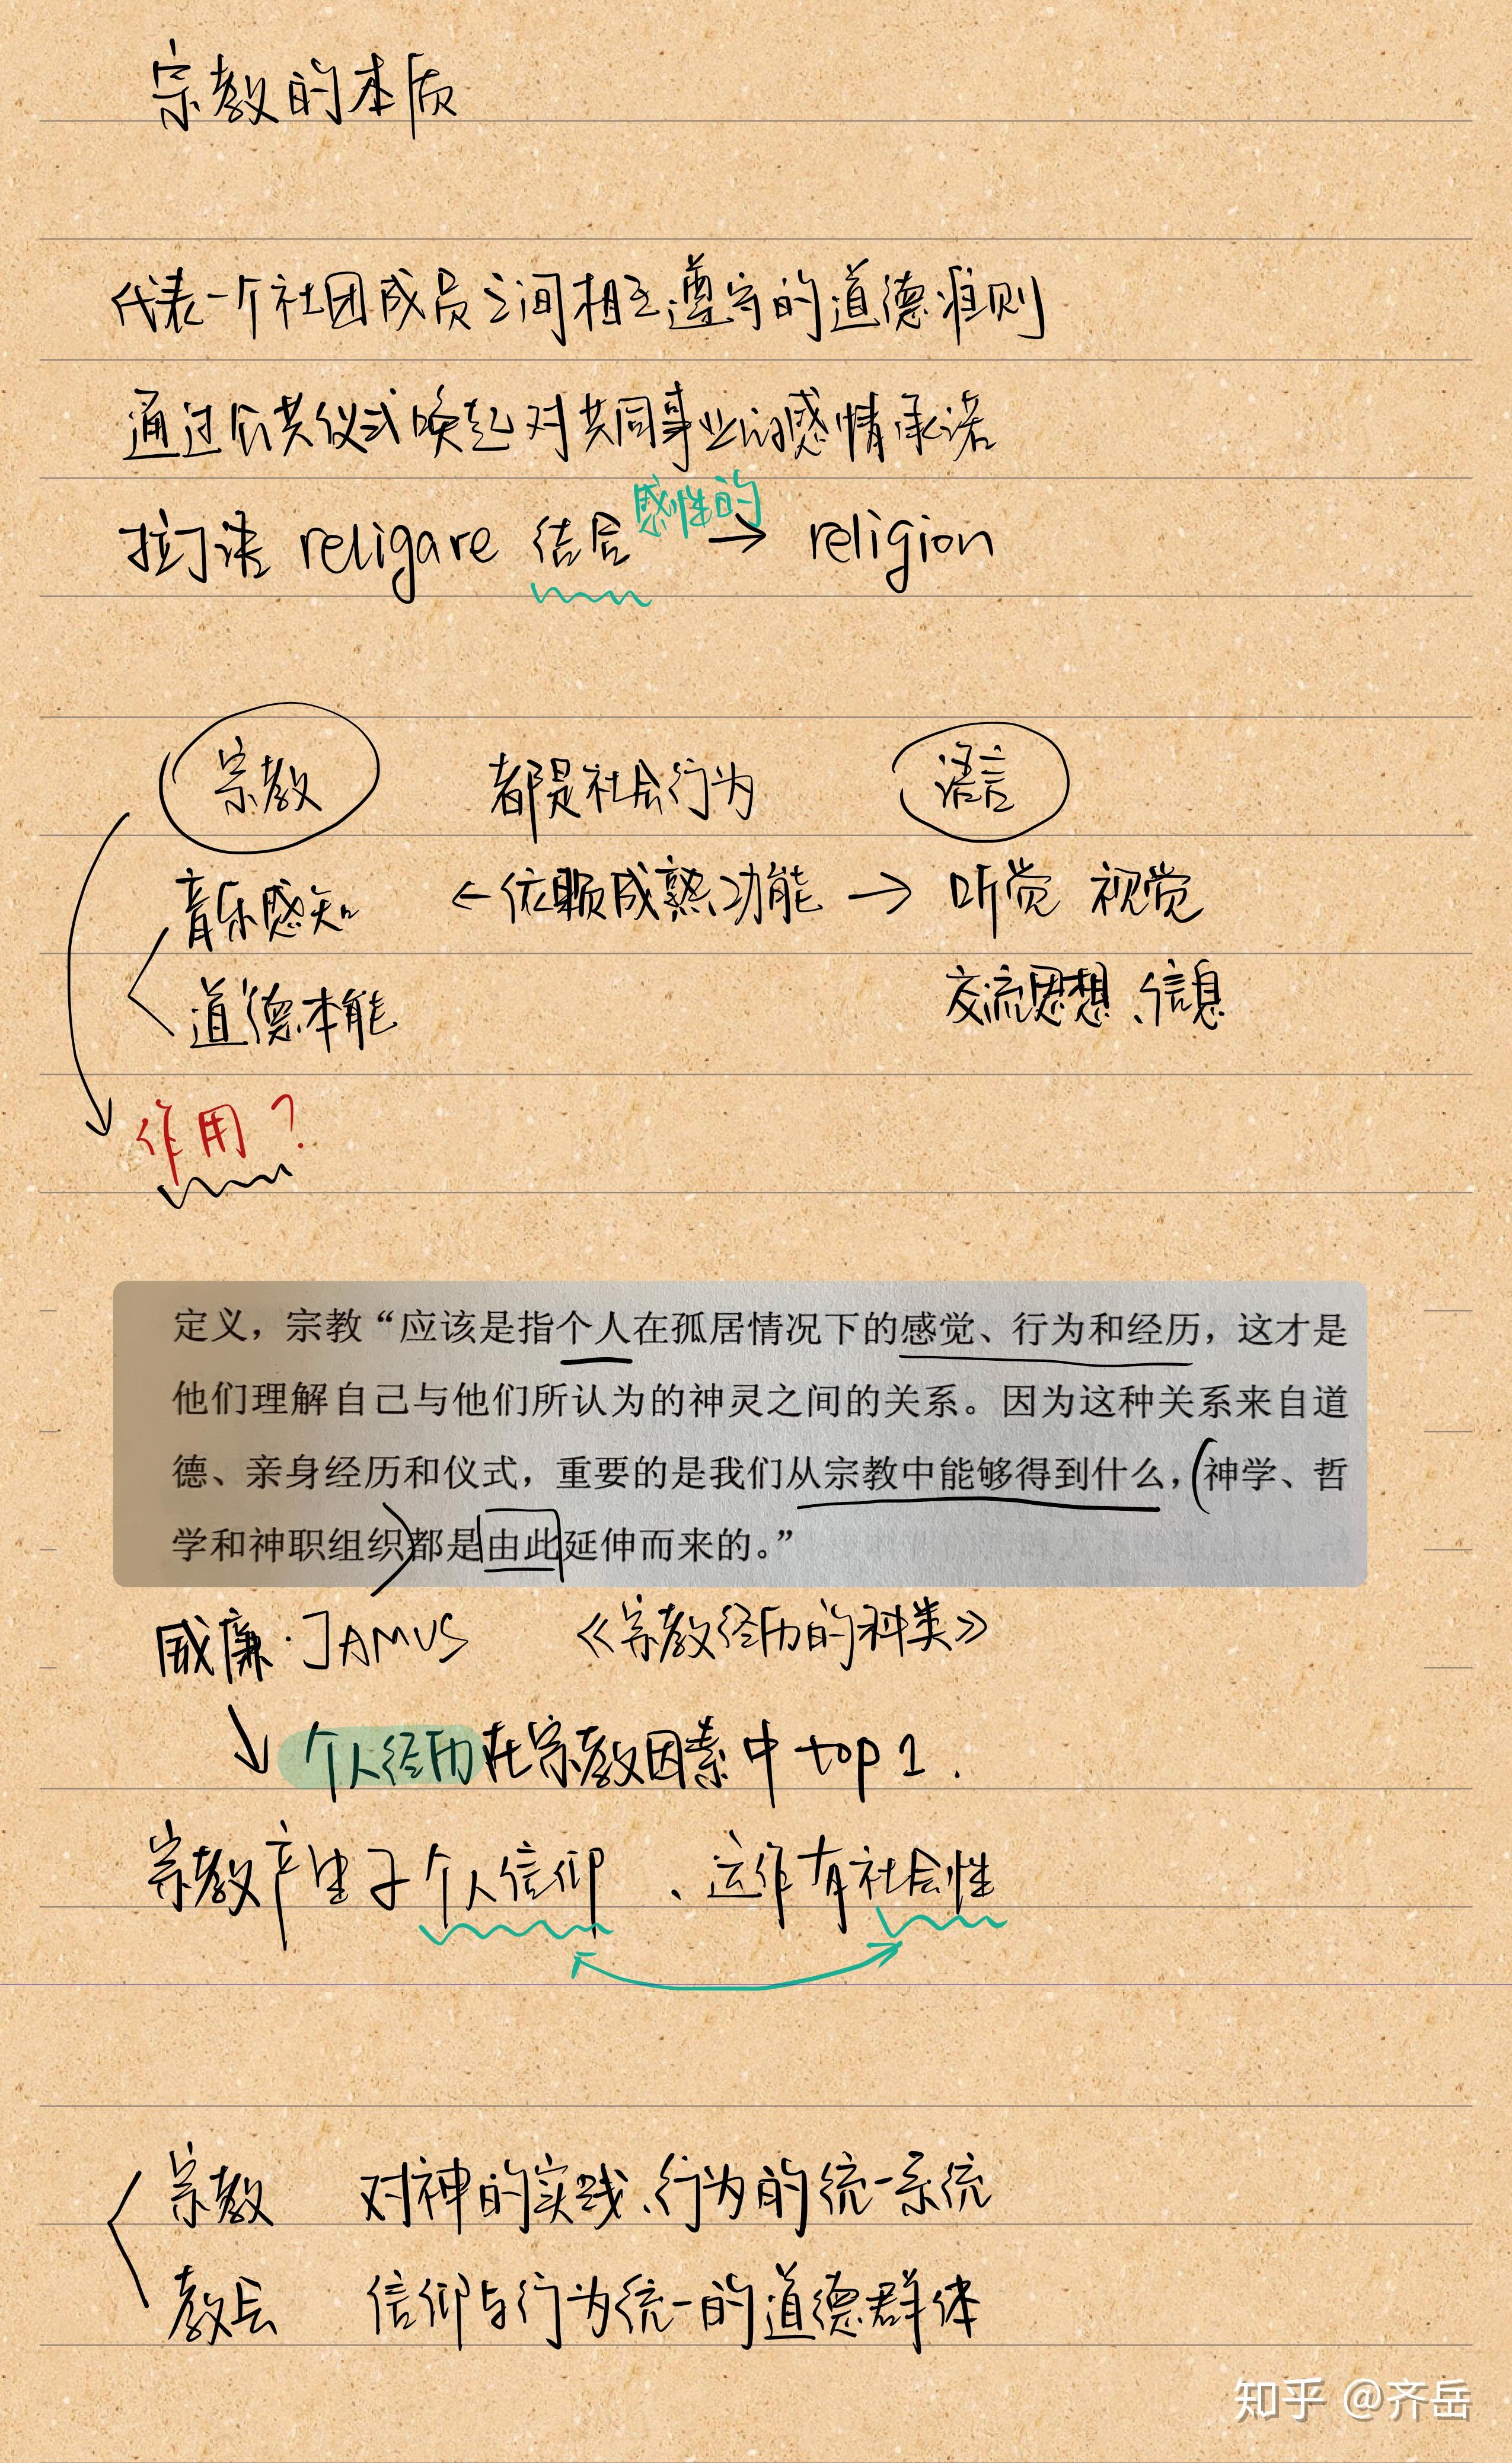 宗教的本质
代表一个社团成员之间相互遵守的道德准则
通过公共仪式唤起对共同事业的感情承诺
感性的
拉丁语 religare 结合 → religion
宗教 都是社会行为 语言
音乐感知 ← 依赖成熟功能 → 听觉 视觉
道德本能 交流思想、信息
作用?
定义，宗教“应该是指个人在孤居情况下的感觉、行为和经历，这才是
他们理解自己与他们所认为的神灵之间的关系。因为这种关系来自道
德、亲身经历和仪式，重要的是我们从宗教中能够得到什么，(神学、哲
学和神职组织)都是由此延伸而来的。”
威廉·JAMUS 《宗教经历的种类》
个人经历在宗教因素中 top 1.
宗教产生于个人信仰、运作有社会性
宗教 对神的实践、行为的统一系统
教会 信仰与行为统一的道德群体
知乎 @齐岳